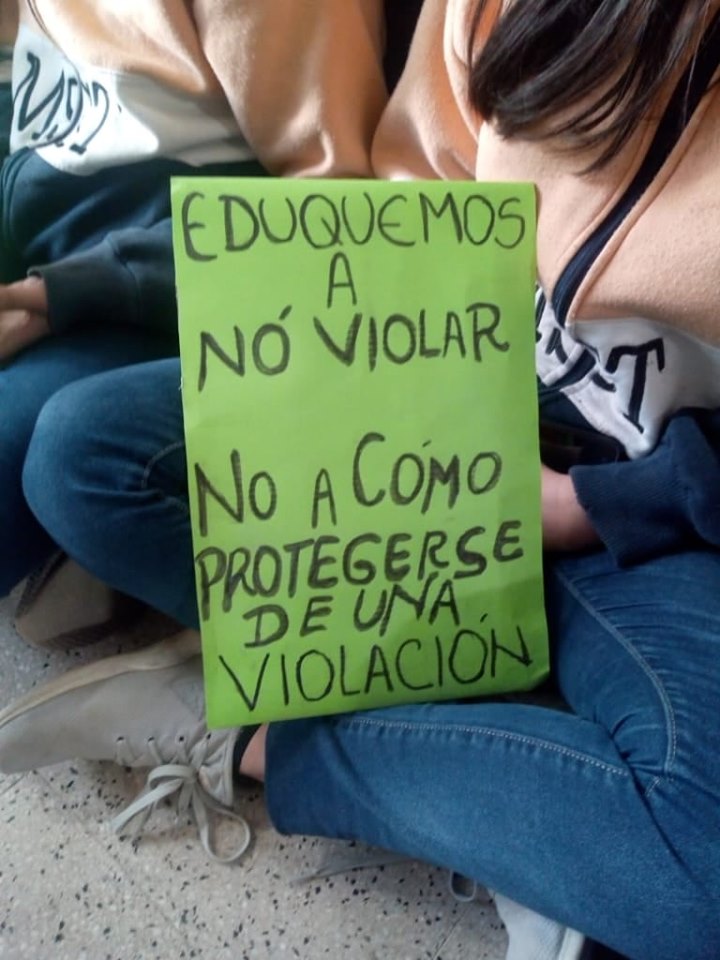 EDUQUEMOS
A
NÓ VIOLAR
NO A CÓMO
PROTEGERSE
DE UNA
VIOLACIÓN